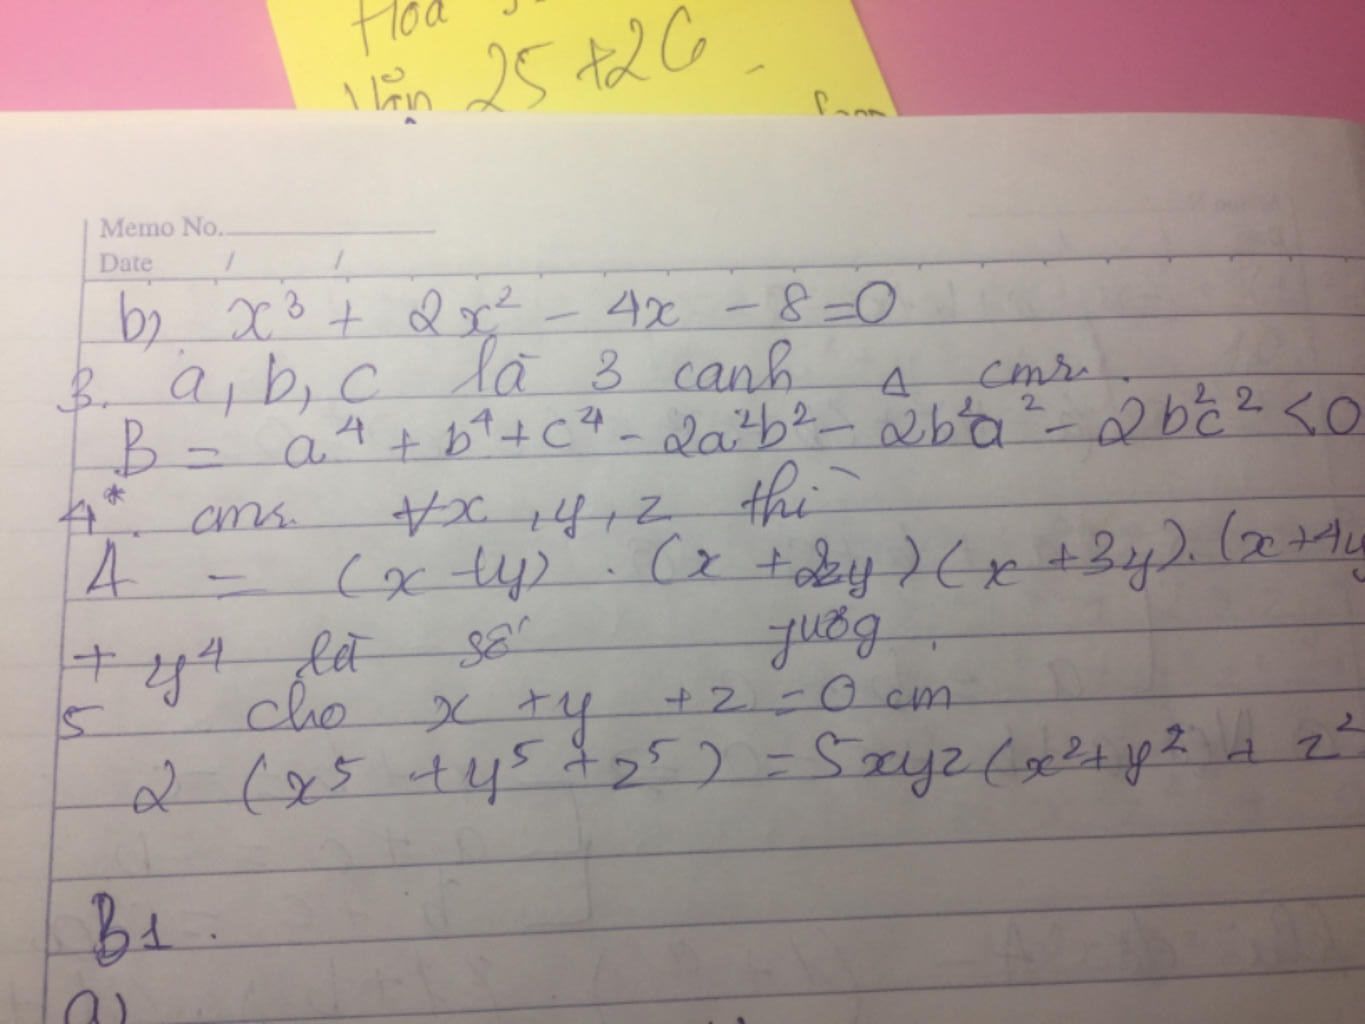 Hoá
Văn 25 + 26
Memo No.
Date / /
b) x³ + 2x² - 4x - 8 = 0
3. a, b, c là 3 canh Δ cmr.
B = a⁴ + b⁴ + c⁴ - 2a²b² - 2b²a² - 2b²c² < 0
4*. cmr. ∀x, y, z thì
A = (x + y) . (x + 2y) (x + 3y). (x + 4y
+ y⁴ là số
5 cho x + y + z = 0 cm
2 (x⁵ + y⁵ + z⁵) = 5xyz (x² + y² + z²
B1.
a)